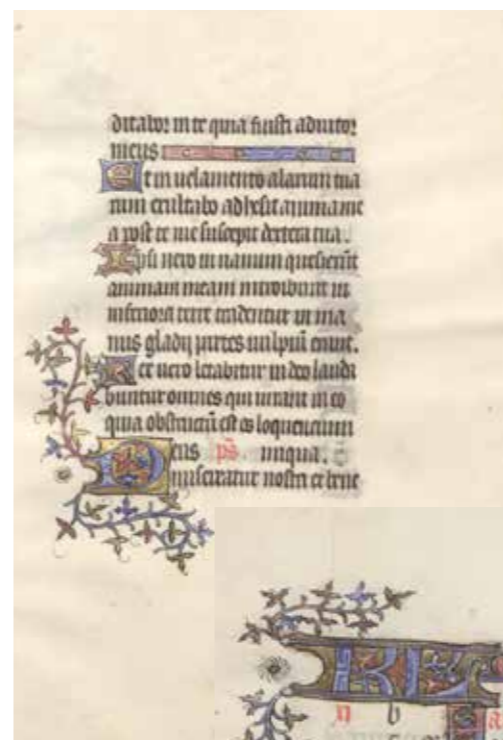 ditabor in te quia fuisti adiutor
meus
Et in uelamento alarum tua
rum exultabo adhesit anima me
a post te me suscepit dextera tua.
Ipsi uero in uanum quesierūt
animam meam introibunt in
inferiora terre tradentur in ma
nus gladij partes uulpiū erunt.
Rex uero letabitur in deo laudā
buntur omnes qui iurant in eo
quia obstructū est os loquencium
Deus ps̄ iniqua.
misereatur nostri et bene
KL
n b